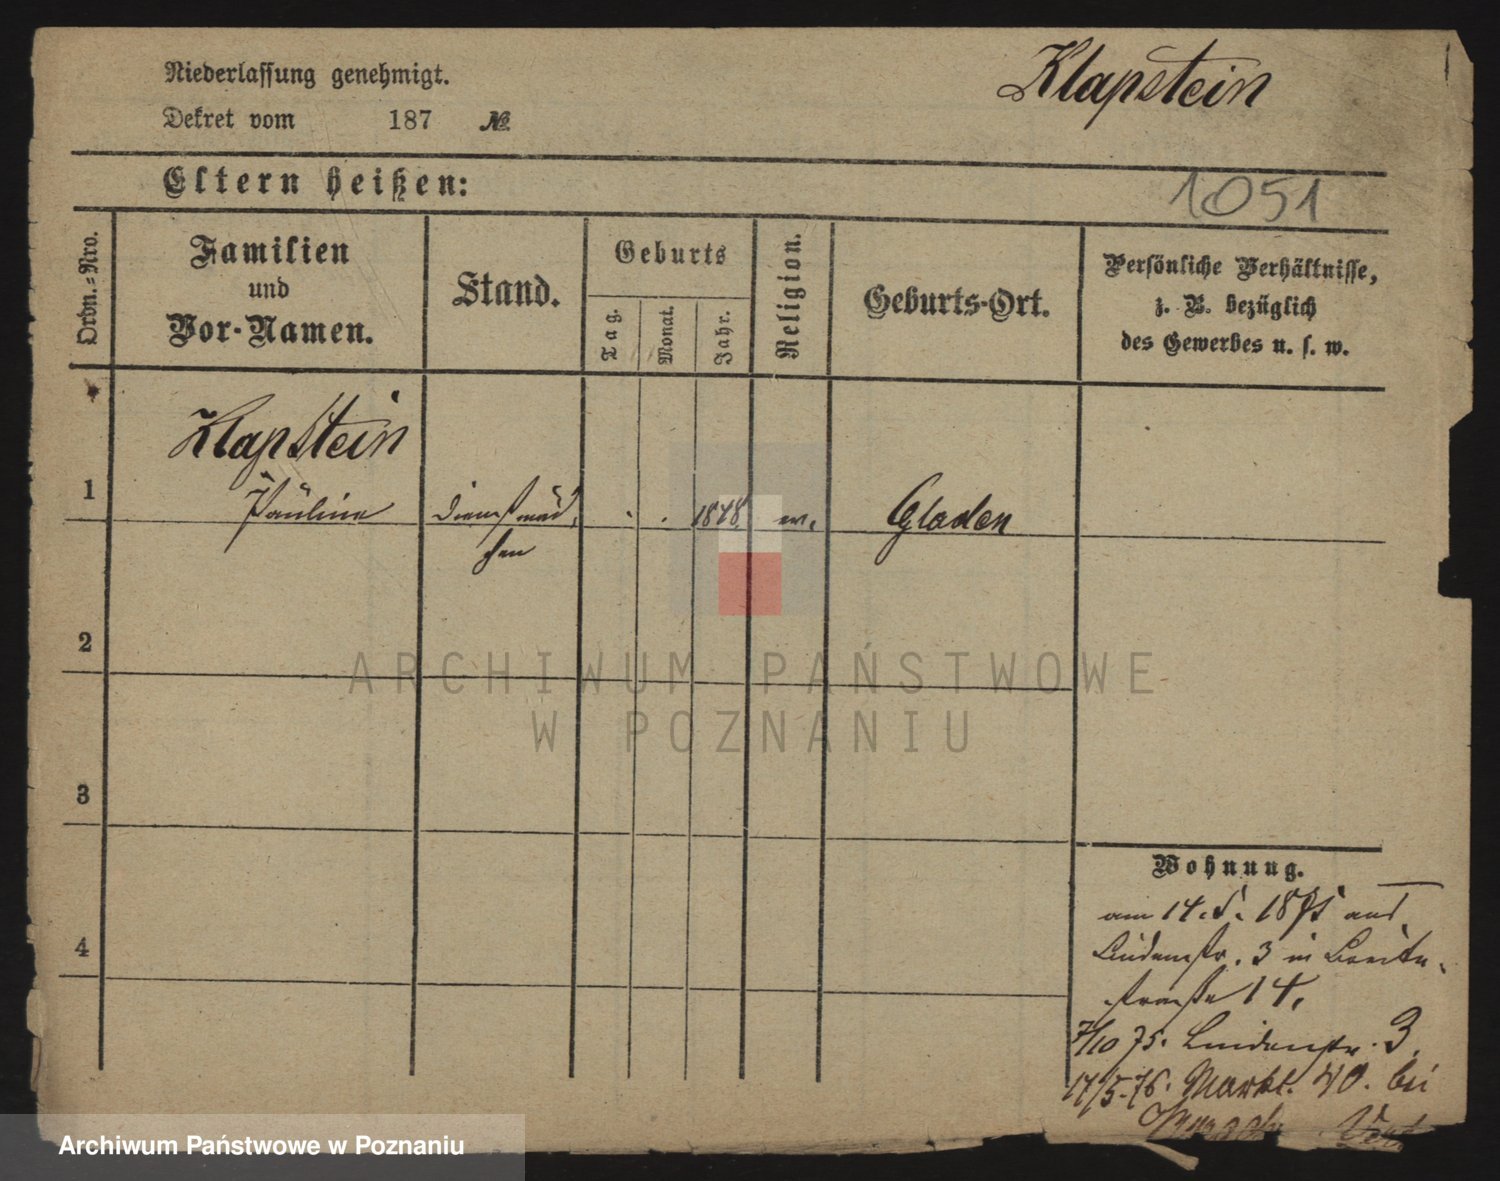 Niederlassung genehmigt.
Klapstein
Dekret vom 187 №
Eltern heißen:
1051
Ordn.-Nro.
Familien
und
Vor-Namen.
Stand.
Geburts
Tag.
Monat.
Jahr.
Religion.
Geburts-Ort.
Persönliche Verhältnisse,
z. B. bezüglich
des Gewerbes u. s. w.
Klapstein
1 Pauline Dienstmäd 1848 ev. Gladen
chen
2
ARCHIWUM PAŃSTWOWE
W POZNANIU
3
Wohnung.
am 14.5. 1875 aus
Lindenstr. 3 in Breite-
4
straße 14.
7/10 75. Lindenstr. 3.
17/5.76. Markt. 40. bei
Archiwum Państwowe w Poznaniu